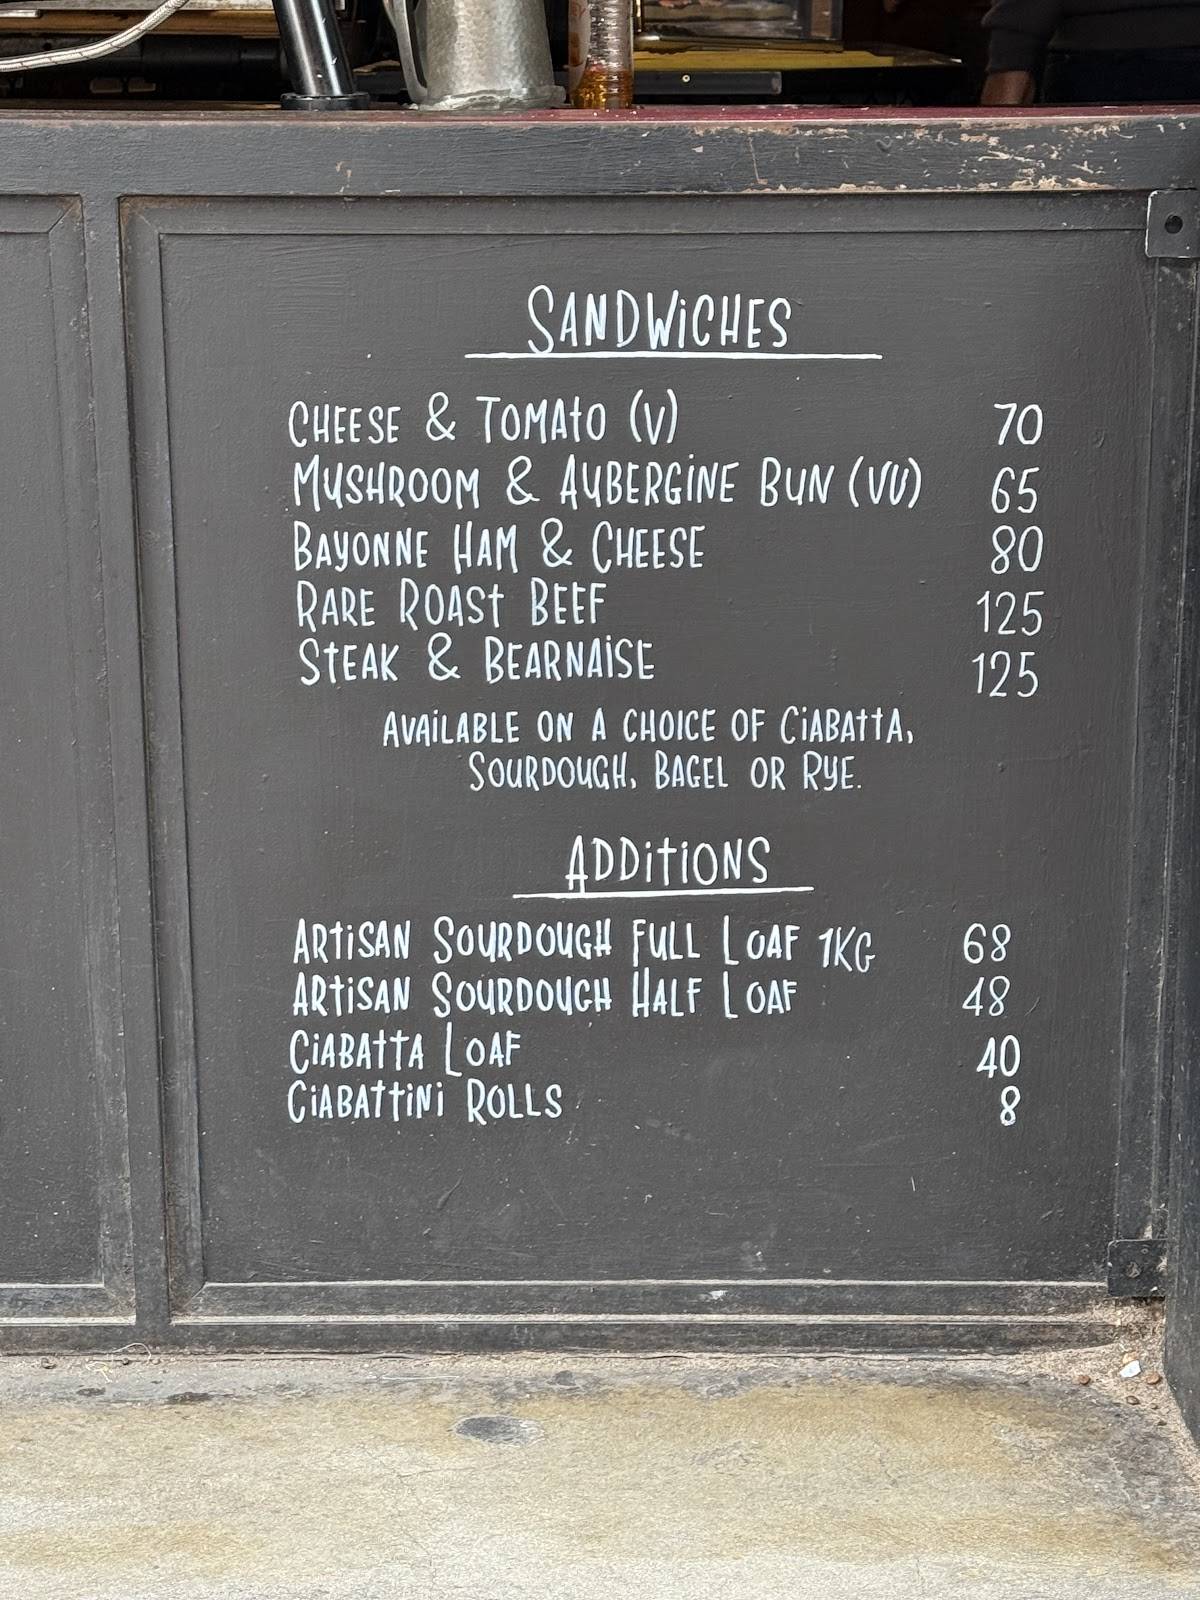 SANDWiCHES
CHEESE & TOMAtO (V) 70
MUSHROOM & AUBERGiNE BUN (VV) 65
BAYONNE HAM & CHEESE 80
RARE ROASt BEEF 125
StEAK & BEARNAiSE 125
AVAiLABLE ON A CHOiCE OF CiABAttA,
SOURDOUGH, BAGEL OR RYE.
ADDitiONS
ARtiSAN SOURDOUGH FULL LOAF 1KG 68
ARtiSAN SOURDOUGH HALF LOAF 48
CiABAttA LOAF 40
CiABAttiNi ROLLS 8